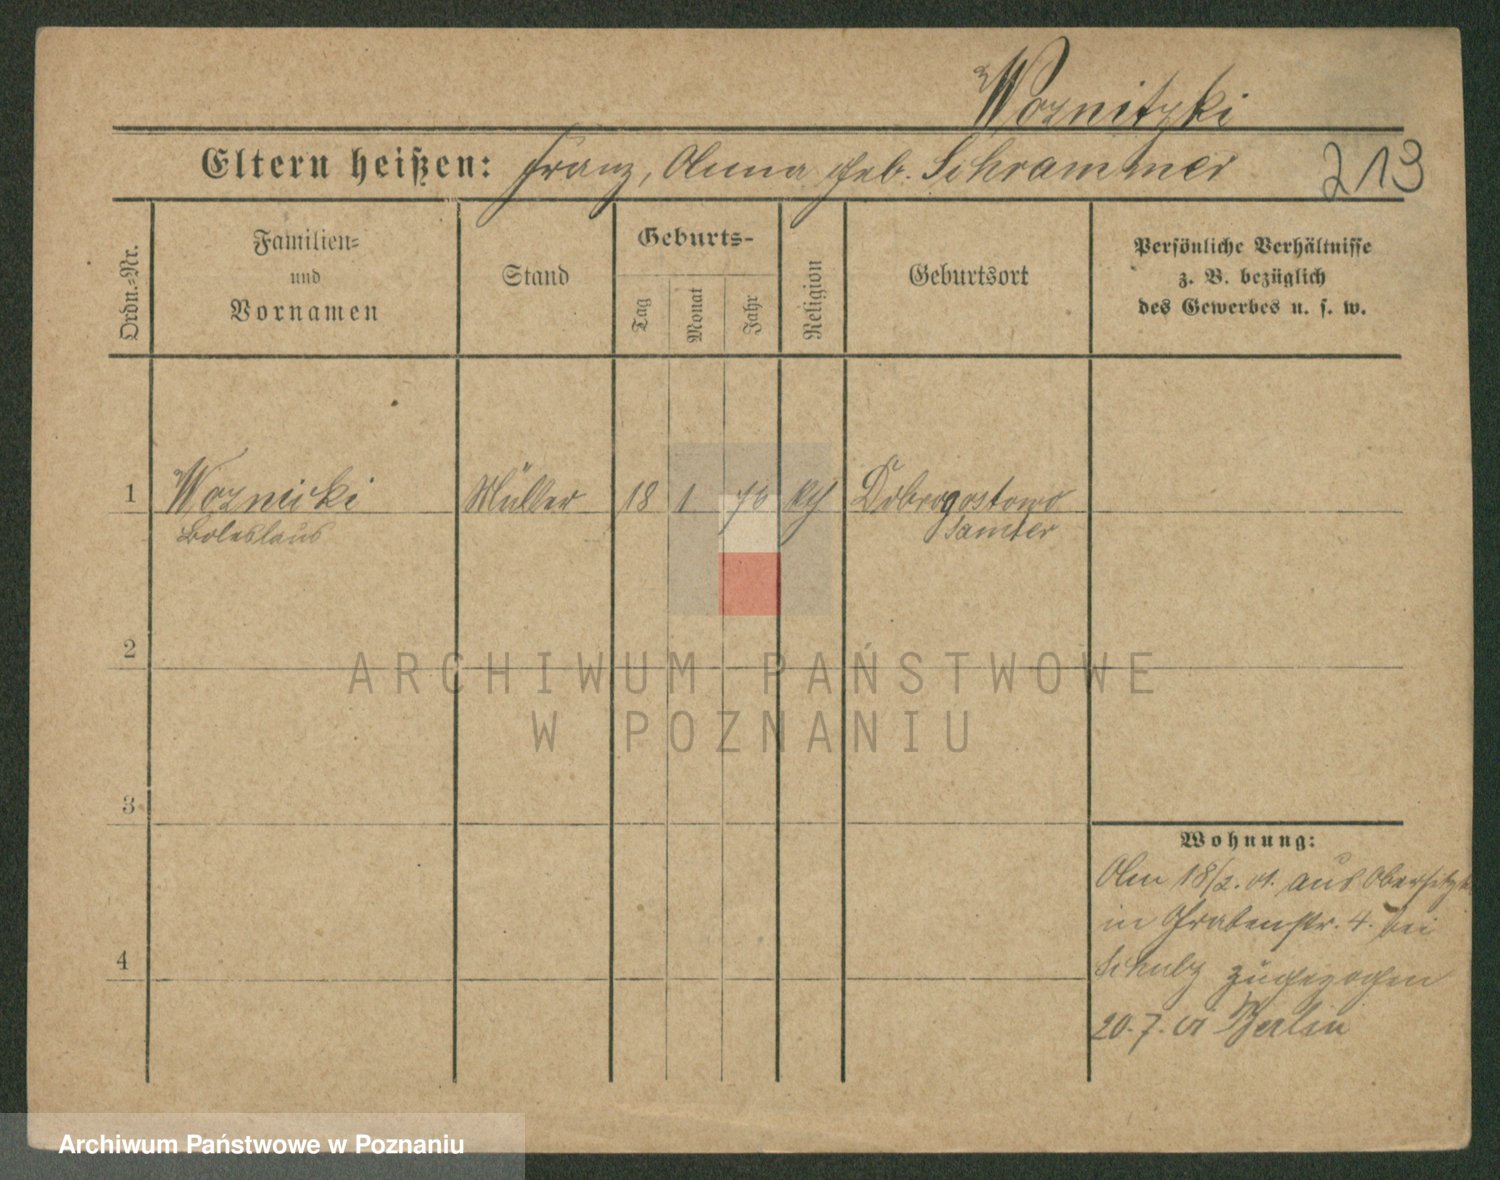 Woznitzki
Eltern heißen: Franz, Anna geb. Schrammer 213
Ordn.-Nr.
Familien-
und
Vornamen
Stand
Geburts-
Tag
Monat
Jahr
Religion
Geburtsort
Persönliche Verhältnisse
z. B. bezüglich
des Gewerbes u. s. w.
1 Woznicki Müller 18 1 76 kth Dobrogostowo
Boleslaus Samter
2
3
4
Wohnung:
Am 18/2. 01. aus Obersitzko
in Grabenstr. 4. bei
Schulz zugezogen
20. 7. 01 Berlin
ARCHIWUM PAŃSTWOWE
W POZNANIU
Archiwum Państwowe w Poznaniu